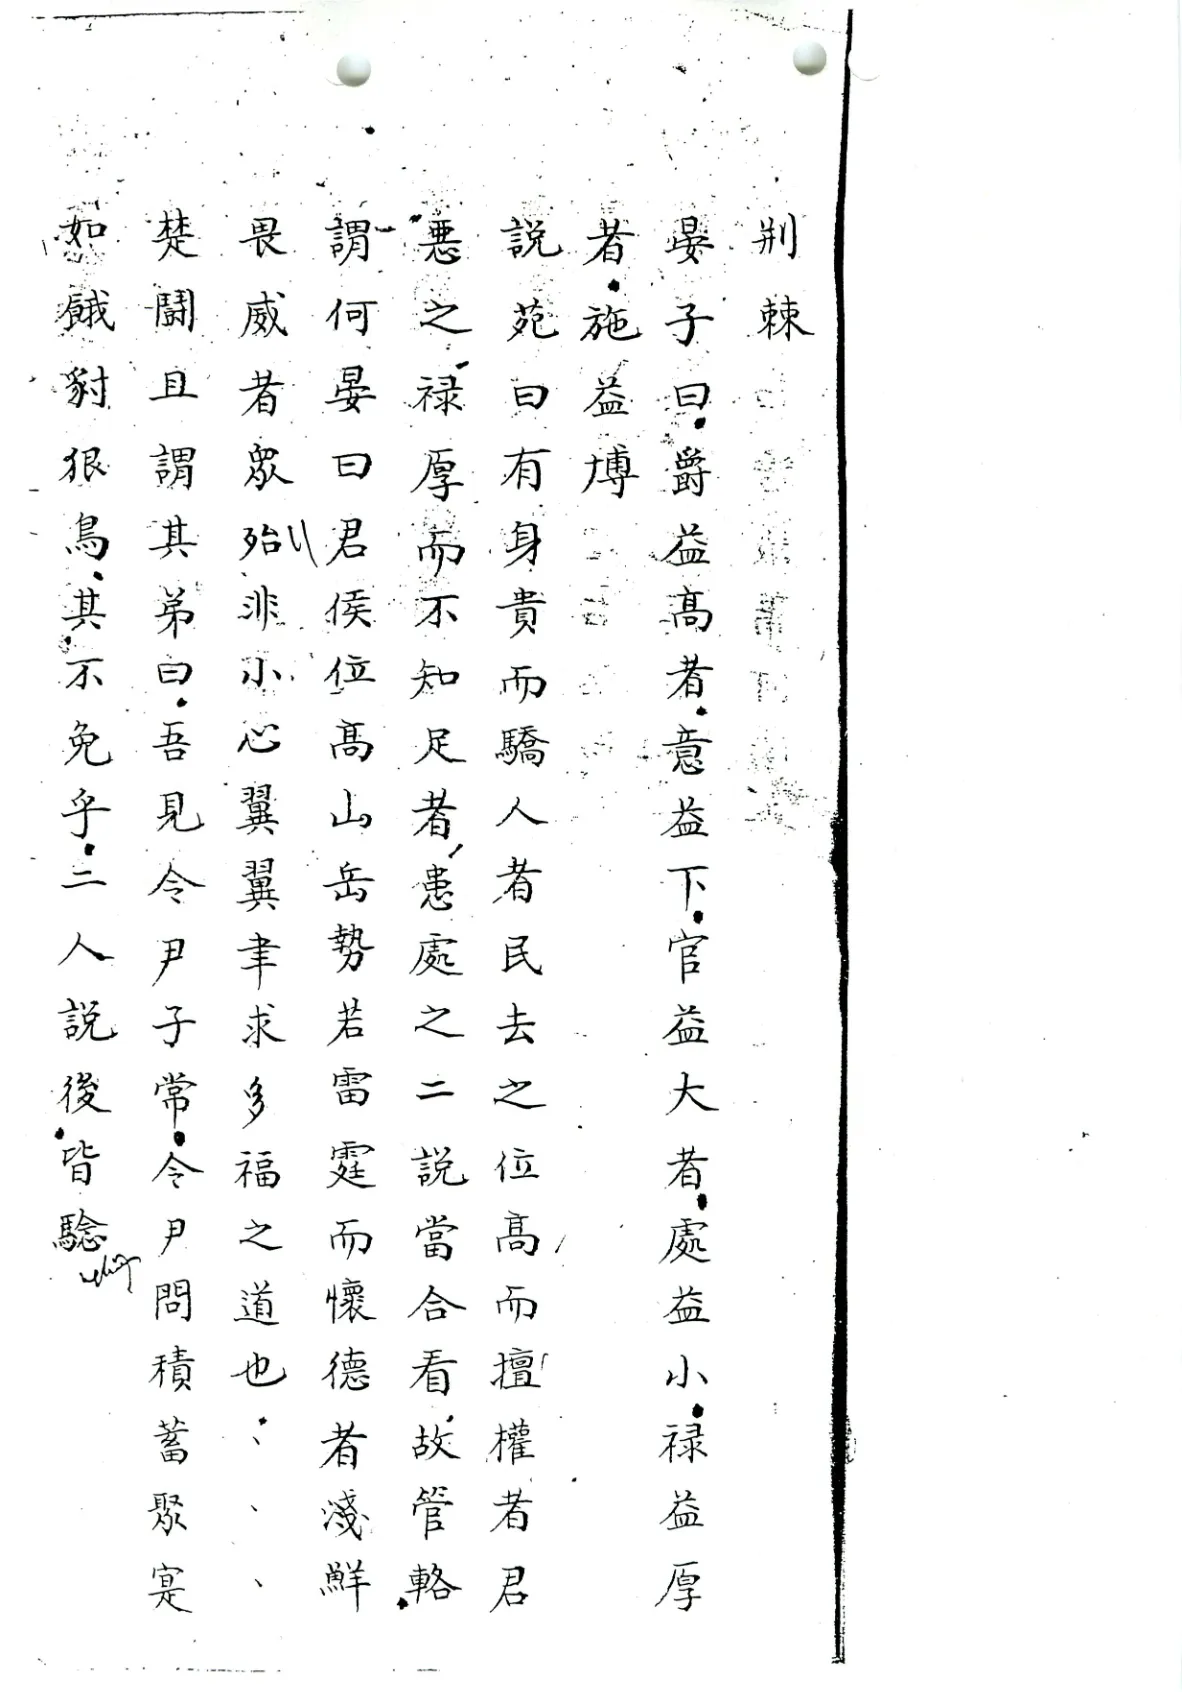 荆棘
晏子曰爵益髙者意益下官益大者處益小禄益厚
者施益博
説苑曰有身貴而驕人者民去之位髙而擅權者君
惡之禄厚而不知足者患處之二説當合看故管輅
謂何晏曰君侯位髙山岳勢若雷霆而懷德者淺鮮
畏威者衆殆非小心翼翼聿求多福之道也、、、
楚鬪且謂其弟曰吾見令尹子常令尹問積蓄聚寔
如餓豺狠鳥其不免乎二人説後皆騐